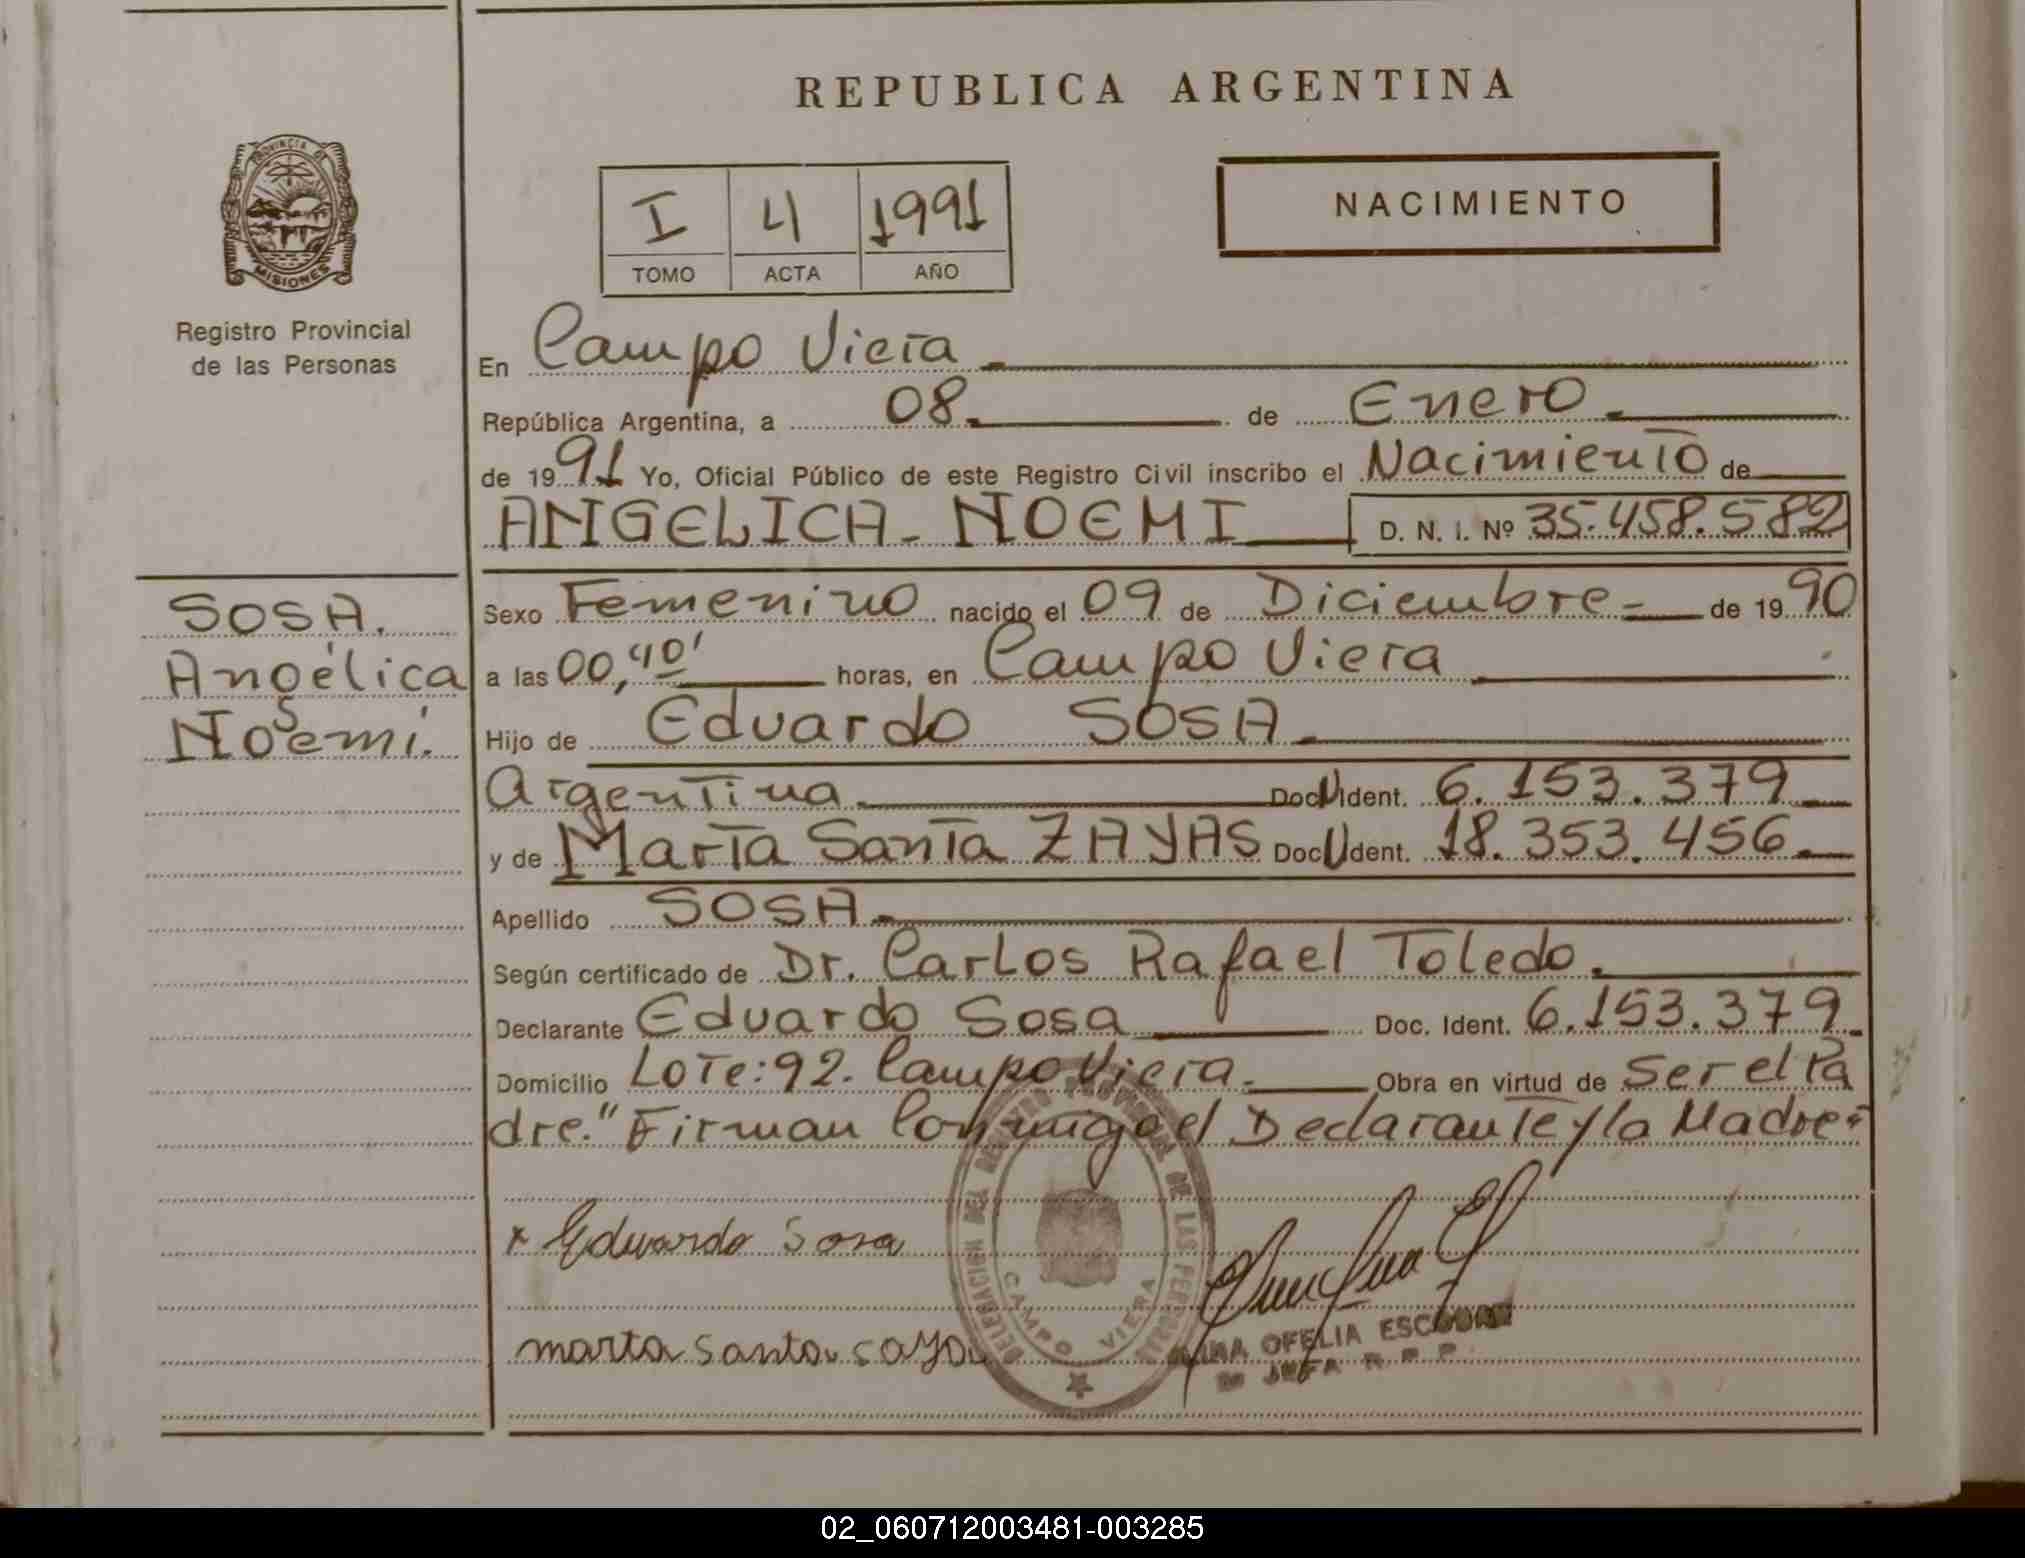 REPUBLICA ARGENTINA
PROVINCIA DE
MISIONES
Registro Provincial
de las Personas
I 4 1991
TOMO ACTA AÑO
NACIMIENTO
En Campo Viera
República Argentina, a 08 de Enero
de 1991 Yo, Oficial Público de este Registro Civil inscribo el Nacimiento de
ANGELICA - NOEMI D. N. I. Nº 35.458.582
SOSA.
Angélica
Noemí.
Sexo Femenino nacido el 09 de Diciembre = de 1990
a las 00,40' horas, en Campo Viera
Hijo de Eduardo SOSA.
Argentina. Doc. Ident. 6.153.379
y de Marta Santa ZAYAS Doc. Ident. 18.353.456.
Apellido SOSA.
Según certificado de Dr. Carlos Rafael Toledo.
Declarante Eduardo Sosa Doc. Ident. 6.153.379.
Domicilio Lote: 92. Campo Viera. Obra en virtud de Ser el Pa
dre." Firman Conmigo el Declarante y la Madre=
DELEGACION DEL REGISTRO PROVINCIAL DE LAS PERSONAS
CAMPO VIERA
x Eduardo Sosa
marta santa sayas
OFELIA
JEFA R. P. P.
02_060712003481-003285